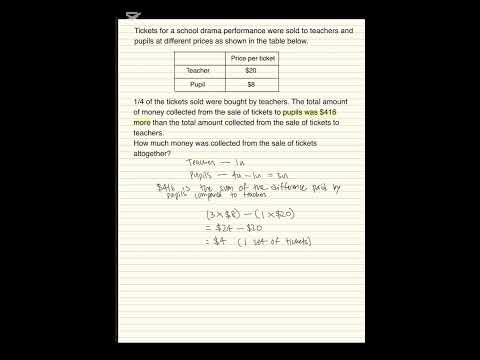 Tickets for a school drama performance were sold to teachers and
pupils at different prices as shown in the table below.
Price per ticket
Teacher $20
Pupil $8
1/4 of the tickets sold were bought by teachers. The total amount
of money collected from the sale of tickets to pupils was $416
more than the total amount collected from the sale of tickets to
teachers.
How much money was collected from the sale of tickets
altogether?
Teachers — 1u
Pupils — 4u - 1u = 3u
$416 is the sum of the difference paid by
pupils compared to teachers
(3 x $8) - (1 x $20)
= $24 - $20
= $4 (1 set of tickets)